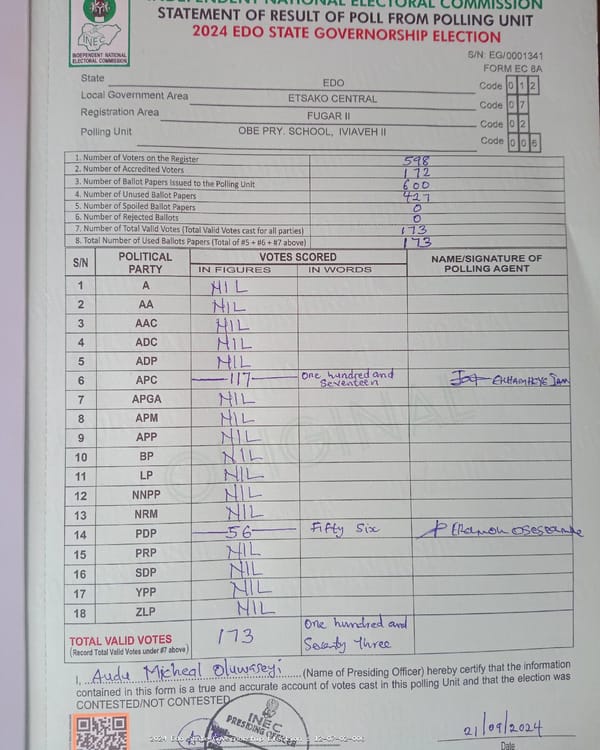 INDEPENDENT NATIONAL ELECTORAL COMMISSION
STATEMENT OF RESULT OF POLL FROM POLLING UNIT
2024 EDO STATE GOVERNORSHIP ELECTION
INEC
INDEPENDENT NATIONAL
ELECTORAL COMMISSION
S/N: EG/0001341
FORM EC 8A
State EDO Code 0 1 2
Local Government Area ETSAKO CENTRAL Code 0 7
Registration Area FUGAR II Code 0 2
Polling Unit OBE PRY. SCHOOL, IVIAVEH II Code 0 0 6
1. Number of Voters on the Register 598
2. Number of Accredited Voters 172
3. Number of Ballot Papers Issued to the Polling Unit 600
4. Number of Unused Ballot Papers 427
5. Number of Spoiled Ballot Papers 0
6. Number of Rejected Ballots 0
7. Number of Total Valid Votes (Total Valid Votes cast for all parties) 173
8. Total Number of Used Ballots Papers (Total of #5 + #6 + #7 above) 173
S/N POLITICAL PARTY VOTES SCORED NAME/SIGNATURE OF POLLING AGENT
IN FIGURES IN WORDS
1 A NIL
2 AA NIL
3 AAC NIL
4 ADC NIL
5 ADP NIL
6 APC 117 One hundred and Seventeen
7 APGA NIL
8 APM NIL
9 APP NIL
10 BP NIL
11 LP NIL
12 NNPP NIL
13 NRM NIL
14 PDP 56 Fifty Six
15 PRP NIL
16 SDP NIL
17 YPP NIL
18 ZLP NIL
ORIGINAL
TOTAL VALID VOTES 173 One hundred and
(Record Total Valid Votes under #7 above) Seventy Three
I, Audu Micheal (Name of Presiding Officer) hereby certify that the information
contained in this form is a true and accurate account of votes cast in this polling Unit and that the election was
CONTESTED/NOT CONTESTED
INEC
PRESIDING OFFICER
21/09/2024
Date